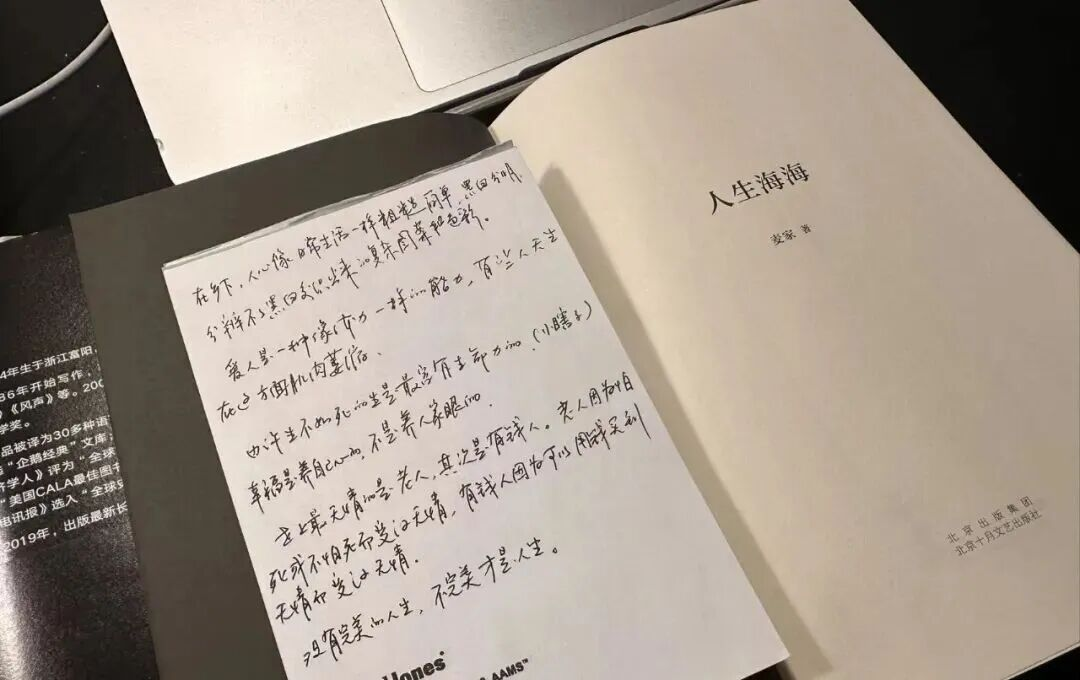 4年生于浙江富阳,
86年开始写作,
》《风声》等。200
学奖。
品被译为30多种语
“企鹅经典”文库;
济学人》评为“全球
“美国CALA最佳图书
电讯报》选入“全球史
2019年,出版最新长
在乡下,人心像日常生活一样粗糙简单,黑白分明,
分辨不了黑白交织出来的复杂图案和色彩。
爱人是一种像体力一样的能力,有些人天生
在这方面肌肉萎缩。
也许生不如死的生是最富有生命力的(小瞎子)
幸福是养自己心的,不是养人家眼的
世上最无情的是老人,其次是有钱人。老人因为怕
死或不怕死而变得无情,有钱人因为可以用钱买到
无情而变得无情。
没有完美的人生,不完美才是人生。
Jones®
AAMS™
人生海海
麦家 著
北京出版集团
北京十月文艺出版社